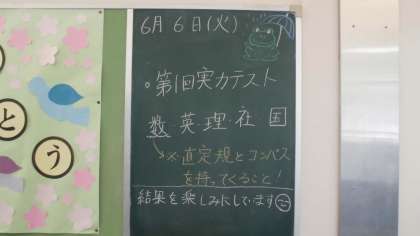 6月6日(火)
。第1回実力テスト
数 英 理 社 国
→※直定規とコンパス
を持ってくること!
結果を楽しみにしています
と
う